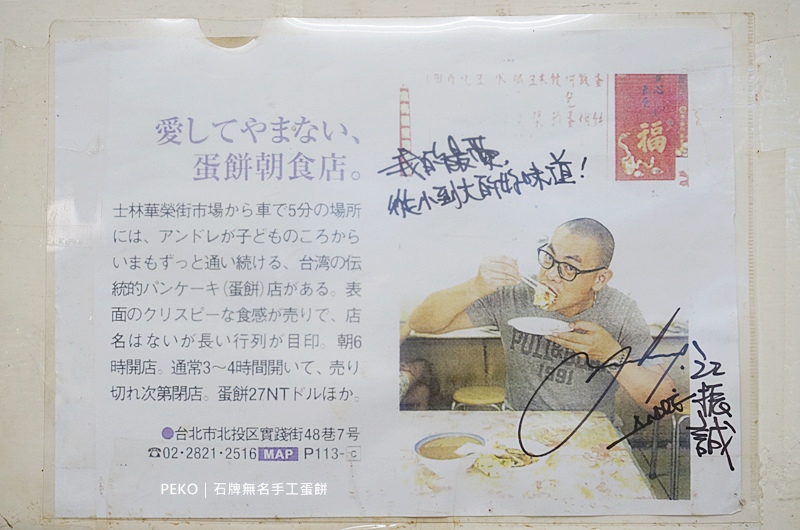 愛してやまない、
蛋餅朝食店。
士林華榮街市場から車で5分の場所
には、アンドレが子どものころから
いまもずっと通い続ける、台湾の伝
統的パンケーキ(蛋餅)店がある。表
面のクリスピーな食感が売りで、店
名はないが長い行列が目印。朝6
時開店。通常3〜4時間開いて、売り
切れ次第閉店。蛋餅27NTドルほか。
●台北市北投区實踐街48巷7号
☎02・2821・2516 MAP P113-C
福
我的最愛,
從小到大的好味道!
1991
江振誠
PEKO | 石牌無名手工蛋餅